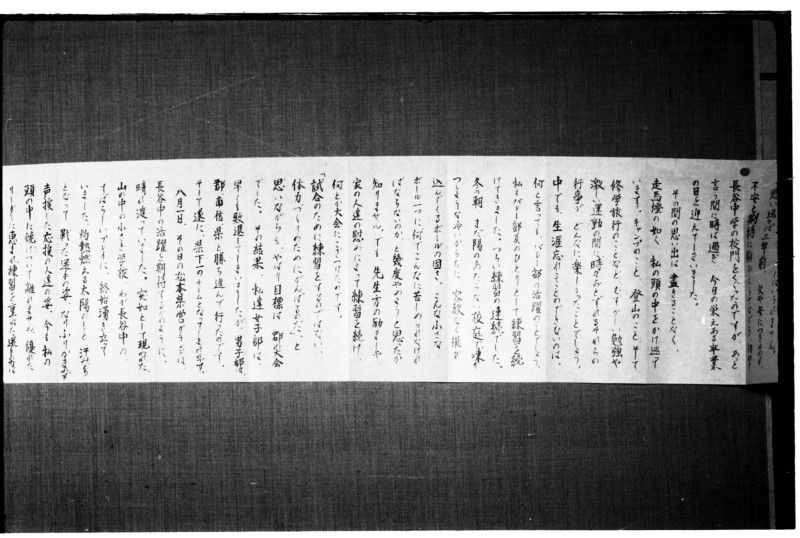 思い返せば三年前
長谷中学の校門をくぐったのですが、あと
言う間に時は過ぎ、今日の栄えある卒業
の日を迎えてしまいました。
その間の思い出は、尽きることなく、
走馬燈の如く、私の頭の中をかけ巡って
います。キャンプのこと、登山のこと、そして
修学旅行のことなど、むずかしい勉強や
激しい運動の間に時々おとずれるこれらの
行事が、どんなに楽しかったことでしょう。
中でも、生涯忘れることのできないのは、
何と言っても、バレー部の活躍のことでしょう。
私もバレー部員のひとりとして練習を続
けてきました。つらい練習の連続でした。
冬の朝、まだ陽のあたらない校庭で凍り
つくような冷がらだに、容赦なく狼が
込んでくるボールの固さ。こんな小さな
ボール一つに何でこんなに苦しめられなけれ
ばならないのか、と幾度やめようと思ったか
知りません。でも、先生方の励ましや
家の人達の慰めによって練習を続け、
何とか大会にこぎつけたのです。
「試合のために練習をするのではない。
体力づくりのためにがんばるんだ。」と
思いながらも、やはり目標は郡大会
でした。その結果、私達女子部は、
早くも敗退してしまいましたが、男子部は、
郡、南信、県と勝ち進んで行ったのです。
そして遂に、県下一のチームとなってきたのです。
八月一日、その日の松本県営グランドは、
長谷中の活躍を期待するかのように、
晴れ渡っていました。突如として現われた
山の中の小さな学校、わが長谷中の
すばらしいプレーに、終始湧き立って
いました。灼熱燃える太陽のもと、汗
となって戦った選手の姿、なりふりかまわず
声援した応援の人達の姿、今も私の
頭の中に焼けついて離れません。優れた
リーダーに恵まれ練習を重ねた選手